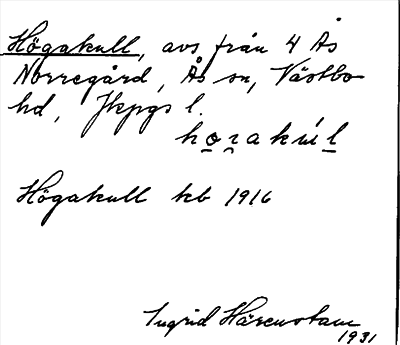 Högakull, avs från 4 Ås
Norregård, Ås sn, Västbo
hd, Jkpgs l.
ho̲ʒakúl̲
Högakull kb 1916
Ingrid Härenstam
1931